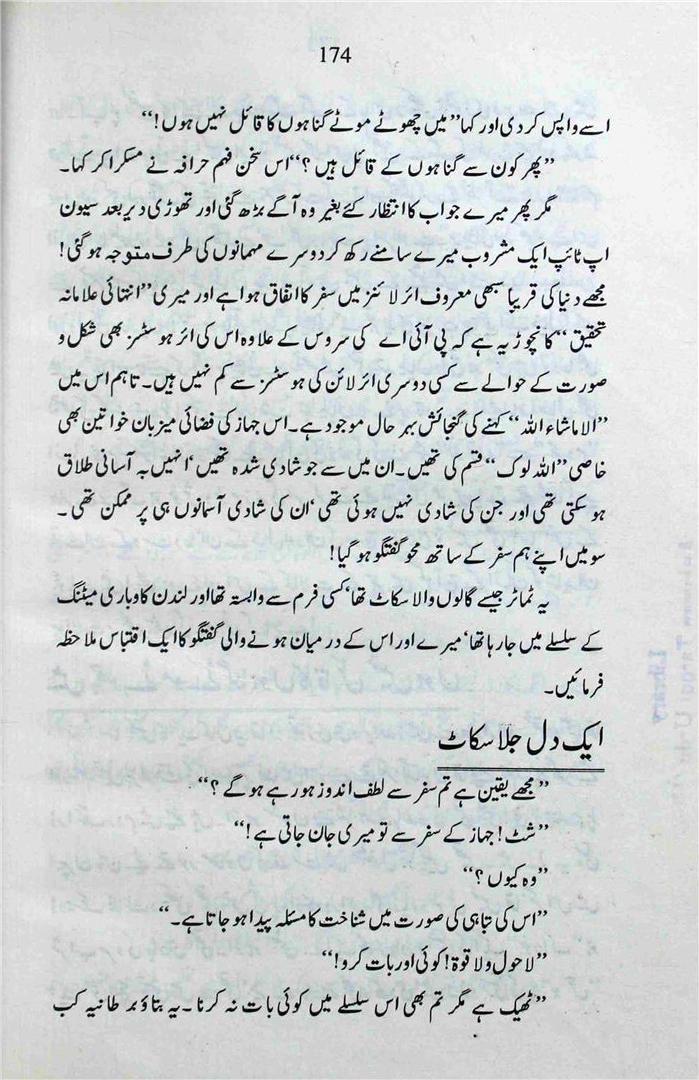 174
اسے واپس کر دی اور کہا ”میں چھوٹے موٹے گناہوں کا قائل نہیں ہوں!“
”پھر کون سے گناہوں کے قائل ہیں؟“ اس سخن فہم حرافہ نے مسکرا کر کہا۔
مگر پھر میرے جواب کا انتظار کئے بغیر وہ آگے بڑھ گئی اور تھوڑی دیر بعد سیون
اپ ٹائپ ایک مشروب میرے سامنے رکھ کر دوسرے مہمانوں کی طرف متوجہ ہو گئی!
مجھے دنیا کی قریباً سبھی معروف ائر لائنز میں سفر کا اتفاق ہوا ہے اور میری ”انتہائی علامانہ
تحقیق“ کا نچوڑ یہ ہے کہ پی آئی اے کی سروس کے علاوہ اس کی ائر ہوسٹسز بھی شکل و
صورت کے حوالے سے کسی دوسری ائر لائن کی ہوسٹسز سے کم نہیں ہیں۔ تاہم اس میں
”الا ماشاء اللہ“ کہنے کی گنجائش بہر حال موجود ہے۔ اس جہاز کی فضائی میزبان خواتین بھی
خاصی ”اللہ لوک“ قسم کی تھیں۔ ان میں سے جو شادی شدہ تھیں‘ انہیں بہ آسانی طلاق
ہو سکتی تھی اور جن کی شادی نہیں ہوئی تھی‘ ان کی شادی آسمانوں ہی پر ممکن تھی۔
سو میں اپنے ہم سفر کے ساتھ محو گفتگو ہو گیا!
یہ ٹماٹر جیسے گالوں والا سکاٹ تھا‘ کسی فرم سے وابستہ تھا اور لندن کاروباری میٹنگ
کے سلسلے میں جا رہا تھا‘ میرے اور اس کے درمیان ہونے والی گفتگو کا ایک اقتباس ملاحظہ
فرمائیں۔
ایک دل جلا سکاٹ
”مجھے یقین ہے تم سفر سے لطف اندوز ہو رہے ہو گے؟“
”شٹ! جہاز کے سفر سے تو میری جان جاتی ہے!“
”وہ کیوں؟“
”اس کی تباہی کی صورت میں شناخت کا مسئلہ پیدا ہو جاتا ہے۔“
”لاحول ولا قوۃ! کوئی اور بات کرو!“
”ٹھیک ہے مگر تم بھی اس سلسلے میں کوئی بات نہ کرنا۔ یہ بتاؤ برطانیہ کب